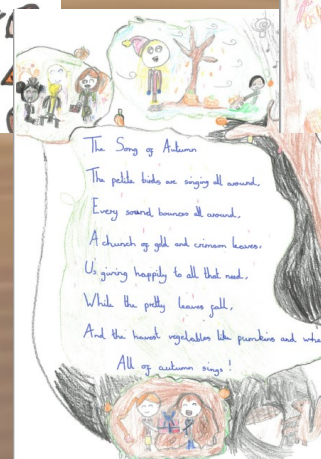 The Song of Autumn
The petite birds are singing all around,
Every sound bounces all around,
A church of gold and crimson leaves,
Us giving happily to all that need,
While the pretty leaves fall,
And the havest vegetables like pumkins and whe
All of autumn sings!